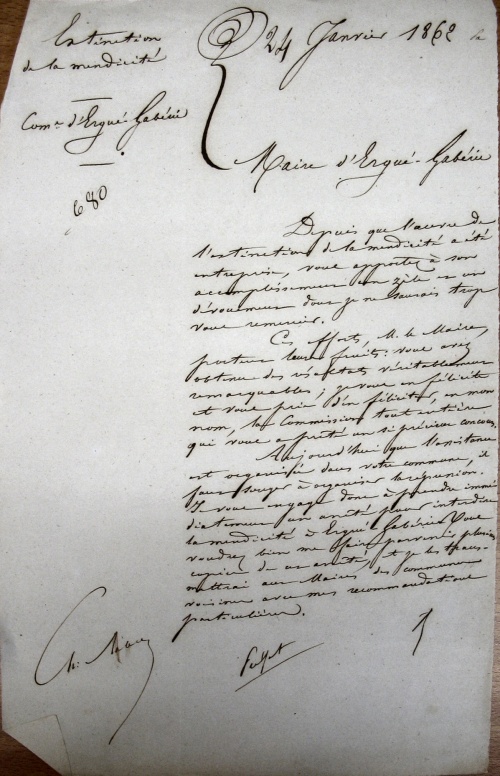 Extinction
de la mendicité
Com.ne d'Ergué-Gabéric
680
24 Janvier 1862
Maire d'Ergué-Gabéric
Depuis que l'œuvre de
l'extinction de la mendicité a été
entreprise, vous apportez à son
accomplissement un zèle et un
dévouement dont je ne saurais trop
vous remercier.
Ces efforts, M. le Maire,
portent leurs fruits : vous avez
obtenu des résultats véritablement
remarquables ; je vous en félicite
et vous prie d'en féliciter, en mon
nom, la Commission tout entière
qui vous a prêté un si précieux concours.
Aujourd'hui que l'assistance
est organisée dans votre commune, il
faut songer à organiser la répression.
Je vous engage donc à prendre immé
diatement un arrêté pour interdire
la mendicité à Ergué Gabéric. Vous
voudrez bien me faire parvenir plusieurs
copies de cet arrêté et je les trans-
mettrai aux Maires des communes
voisines avec mes recommandations
particulières.